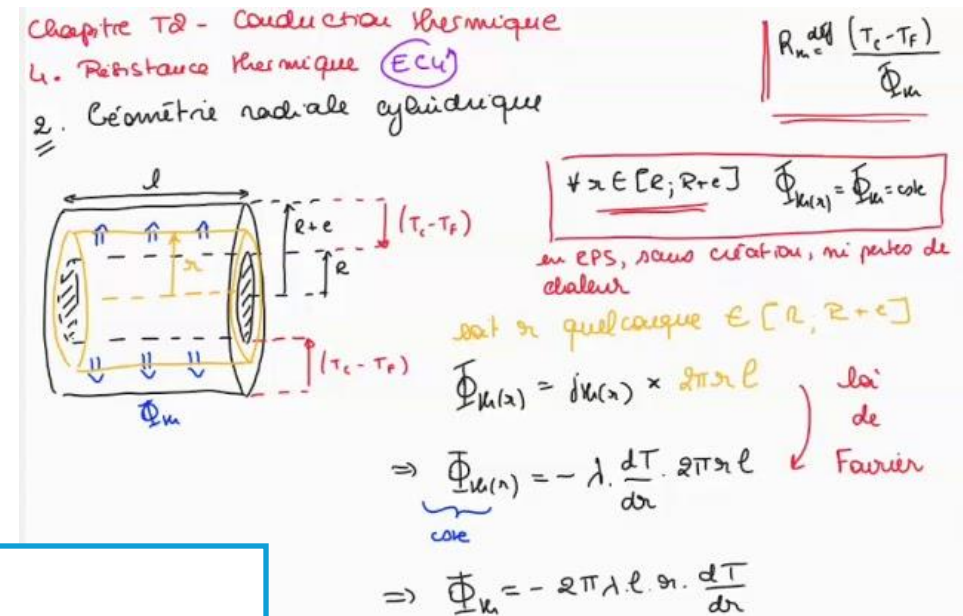 Chapitre T2 - Conduction thermique
4. Résistance thermique (EC4)
2. Géométrie radiale cylindrique
R_th =^déf (T_c - T_F) / Φ_th
l
R+e
R
r
(T_c - T_F)
(T_c - T_F)
Φ_th
∀ r ∈ [R; R+e] Φ_th(r) = Φ_th = cste
en RPS, sans création, ni pertes de
chaleur
soit r quelconque ∈ [R, R+e]
Φ_th(r) = j_th(r) × 2πrl
loi
de
Fourier
⇒ Φ_th(r) = -λ. dT/dr . 2πrl
cste
⇒ Φ_th = -2πλ.l.r. dT/dr